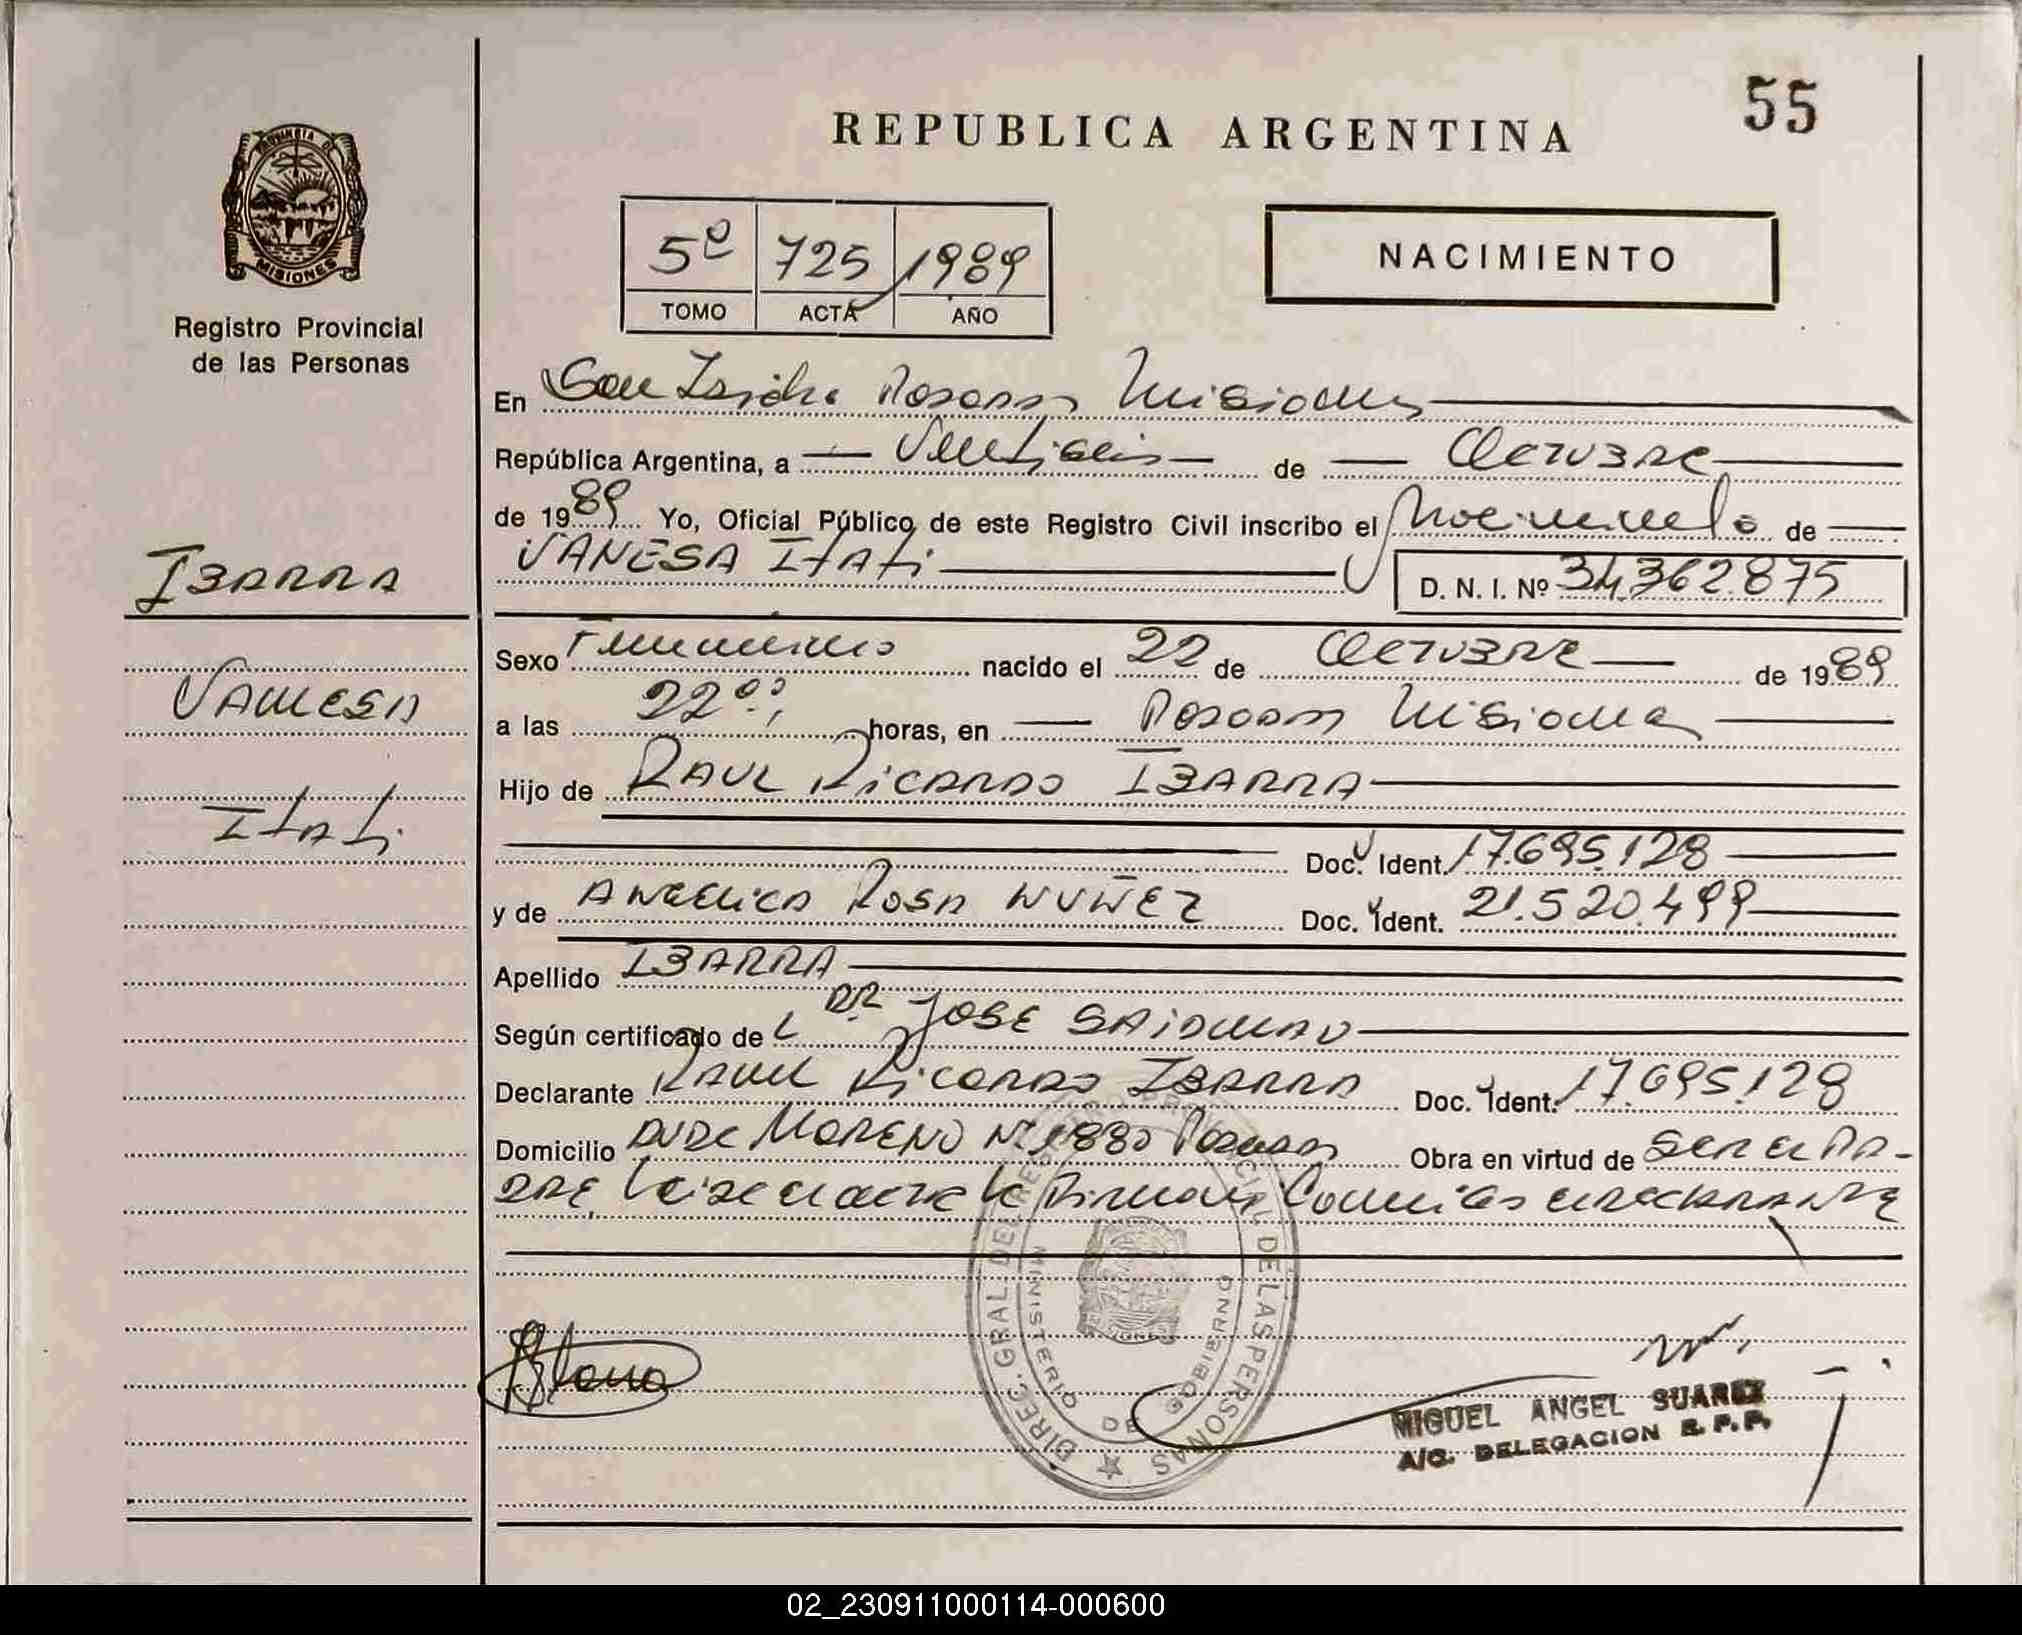 55
REPUBLICA ARGENTINA
PROVINCIA DE
MISIONES
Registro Provincial
de las Personas
5º 725 1989
TOMO ACTA AÑO
NACIMIENTO
En San Isidro Posadas Misiones
República Argentina, a Veintiseis de Octubre
de 1989 Yo, Oficial Público de este Registro Civil inscribo el Nacimiento de
IBARRA
VANESA ITATI D. N. I. Nº 34.362.875
Sexo Femenino nacido el 22 de Octubre de 1989
VANESA
a las 22 horas, en Posadas Misiones
ITATI
Hijo de RAUL RICARDO IBARRA
Doc. Ident. 17.695.128
y de ANGELICA ROSA NUÑEZ Doc. Ident. 21.520.499
Apellido IBARRA
Según certificado de DR JOSE
Declarante RAUL RICARDO IBARRA Doc. Ident. 17.695.128
Domicilio MORENO Nº 1880 Posadas Obra en virtud de SER EL PA-
DRE, Leida el acta la Firman Conmigo el declarante
DIREC. GRAL. DEL REGISTRO PROVINCIAL DE LAS PERSONAS
MINISTERIO DE GOBIERNO
MIGUEL ANGEL SUAREZ
A/C. DELEGACION R. P. P.
02_230911000114-000600